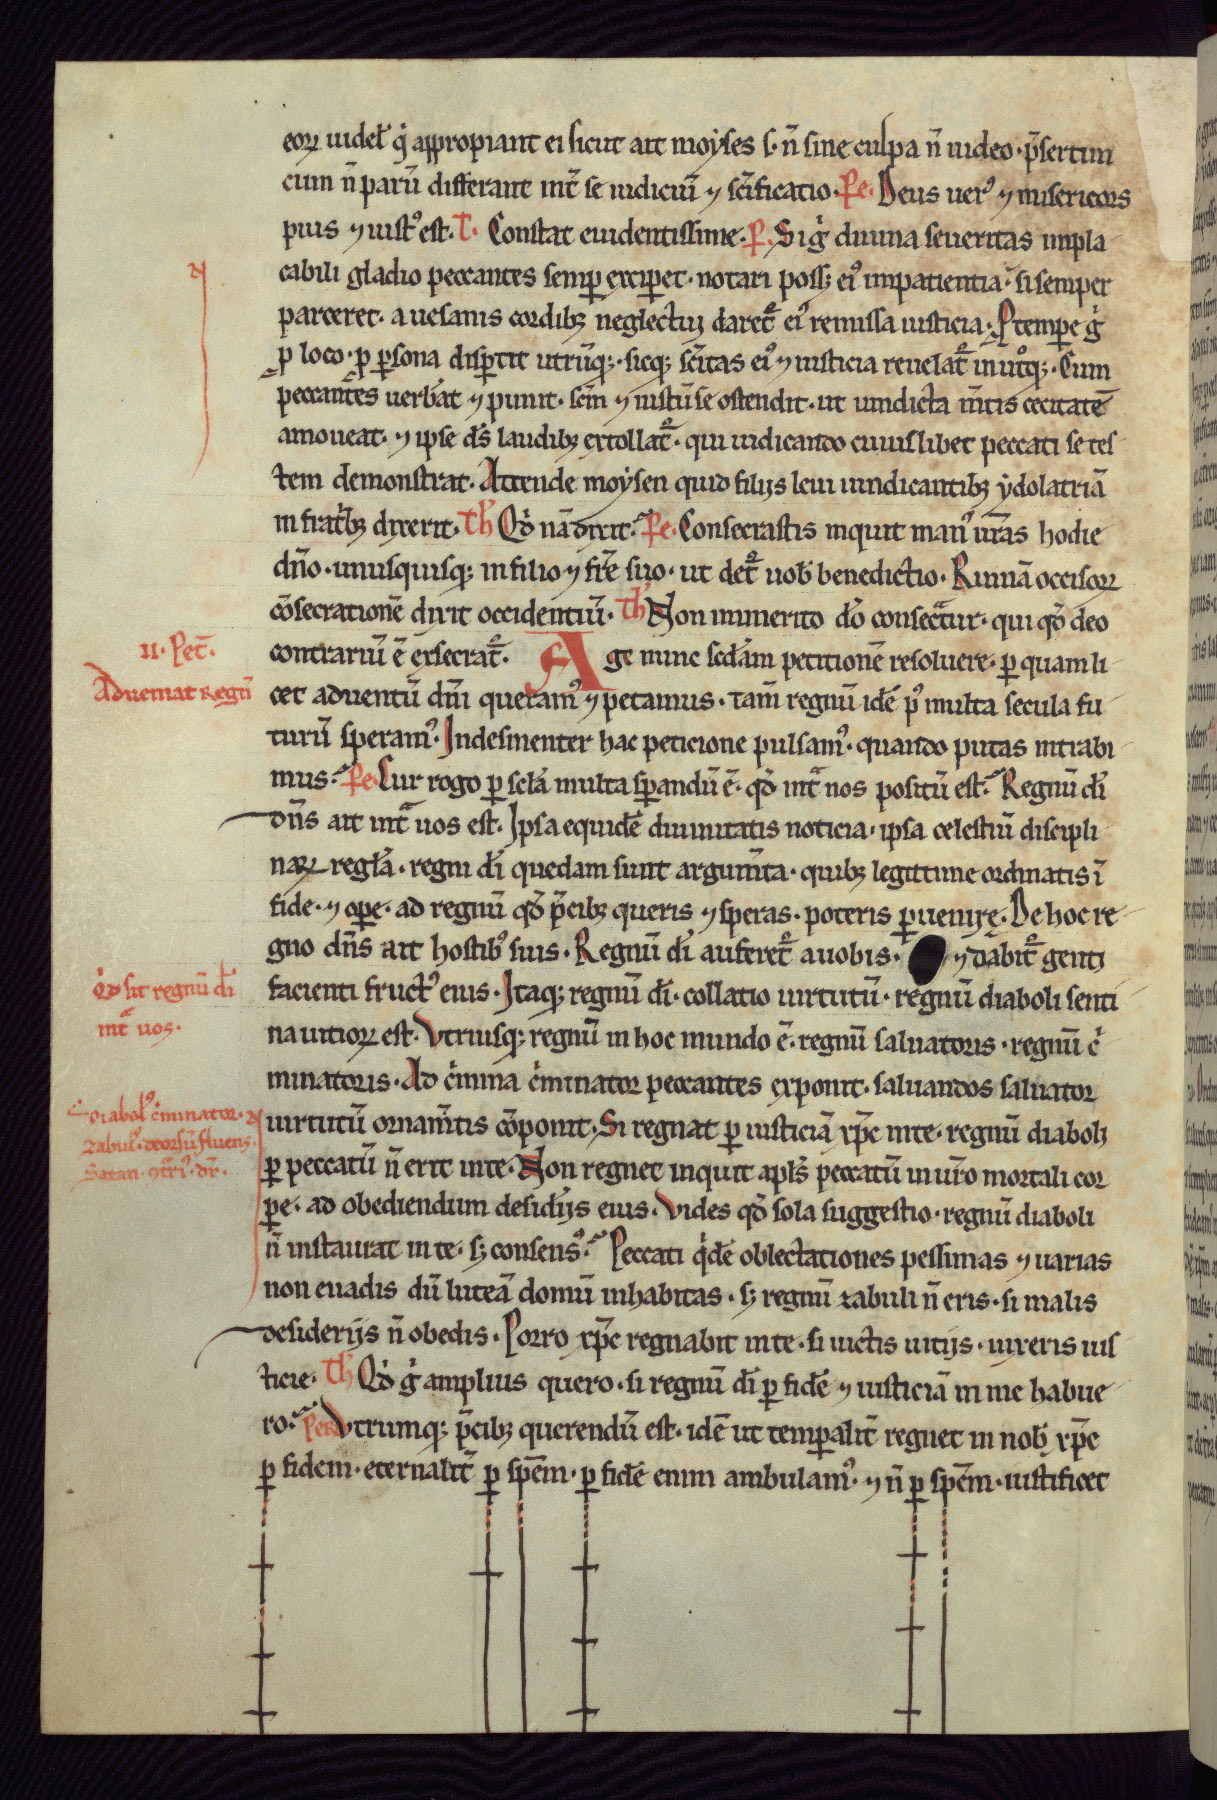 eoꝝ uidet᷑ q̇ appropiant ei sicut ait moyses s· n̄ sine culpa n̄ uideo· p̄sertim
cum n̄ parū differant int̄ se iudiciū ⁊ sc̄ificatio· Pe· Deus uerꝰ ⁊ misericors
pius ⁊ iustꝰ est· T· Constat euidentissime· P· Si g̊ diuina seueritas inpla
cabili gladio peccantes semꝑ exciꝑet· notari posset eiꝰ impatientia· si semper
parceret· a uesanis cordibꝫ neglectui daret᷑ eiꝰ remissa iusticia· P tempe g̊
ꝓ loco· ꝓ ꝑsona disꝑtit utrūqꝫ· sicqꝫ sc̄itas eiꝰ ⁊ iusticia reuelat᷑ in utͦqꝫ· Cum
peccantes uerb̄at ⁊ punit· sc̄m ⁊ iustū se ostendit· ut uindicta m̄tis cecitatē
amoueat· ⁊ ipse ds̄ laudibꝫ extollat᷑· qui uidicando cuiuslibet peccati se tes
tem demonstrat· Attende moysen quid filiis leui uindicantibꝫ ydolatriā
in fratͥbꝫ dixerit· Th Qd̓ nā dixit· Pe· Consecrastis inquit manꝰ ur̄as hodie
dn̄o· unusquisqꝫ in filio ⁊ fr̄e suo· ut det᷑ uob̄ benedictio· Ruinā occisoꝝ
cōsecrationē dixit occidentiū· Th Non immerito dō consecͣtur· qui qd̓ deo
contrariū ē exsecrat᷑· Age nunc scd̄am petitionē resoluere· ꝑ quam li
cet aduentū dn̄i queramꝰ ⁊ petamus· tam̄ regnū idē pꝰ multa secula fu
turū speramꝰ· Indesinenter hac peticione pulsamꝰ· quando putas intrabi
mus· Pe· Cur rogo ꝑ sc̄la multa sꝑandū ē· qd̓ intͣ nos positū est· Regnū dī
dn̄s ait intͣ uos est· Ipsa equidē diuinitatis noticia· ipsa celestiū discipli
naꝝ regl̄a· regni dī quedam sunt argum̄ta· quibꝫ legittime ordinatis ī
fide· ⁊ ope· ad regnū qd̓ p̄cibꝫ queris ⁊ speras· poteris ꝑuenire· De hoc re
gno dn̄s ait hostibꝰ suis· Regnū dī auferet᷑ a uobis· ⁊ dabit᷑ genti
facienti fructꝰ eius· Itaqꝫ regnū dī· collatio uirtutū· regnū diaboli senti
na uitioꝝ est· Vtriusqꝫ regnū in hoc mundo ē· regnū saluatoris· regnū cͥ
minatoris· Ad cͥmina cͥminator peccantes exponit· saluandos saluator
uirtutū ornam̄tis cōponit· Si regnat ꝑ iusticiā xp̄c in te· regnū diaboli
ꝑ peccatū n̄ erit in te· Non regnet inquit apl̄s peccatū in ur̄o mortali cor
pe· ad obediendum desid̓iis eius· Vides qd̓ sola suggestio· regnū diaboli
n̄ instaurat in te· sꝫ consensꝰ· Peccati qͥdē oblectationes pessimas ⁊ uarias
non euadis dū luteā domū inhabitas· sꝫ regnū zabuli n̄ eris· si malis
desideriis n̄ obedis· Porro xp̄c regnabit in te· si uictis uitiis· uixeris ius
ticie· Th Qd̓ g̊ amplius quero· si regnū dī ꝑ fidē ⁊ iusticiā in me habue
ro· Petr· Vtrumqꝫ p̄cibꝫ querendū est· idē ut temꝑalit̄ regnet in nob̄ xp̄c
ꝑ fidem· eternalit̄ ꝑ spēm· ꝑ fidē enim ambulamꝰ· ⁊ n̄ ꝑ spēm· iustificet
II· Pet̄·
Adueniat Regnū
Qd̓ sit regnū dī
intͣ uos·
diabolꝰ cͥminator·
zabulꝰ· deorsū fluens·
Satan· ꝯtͣriꝰ· dr̄·